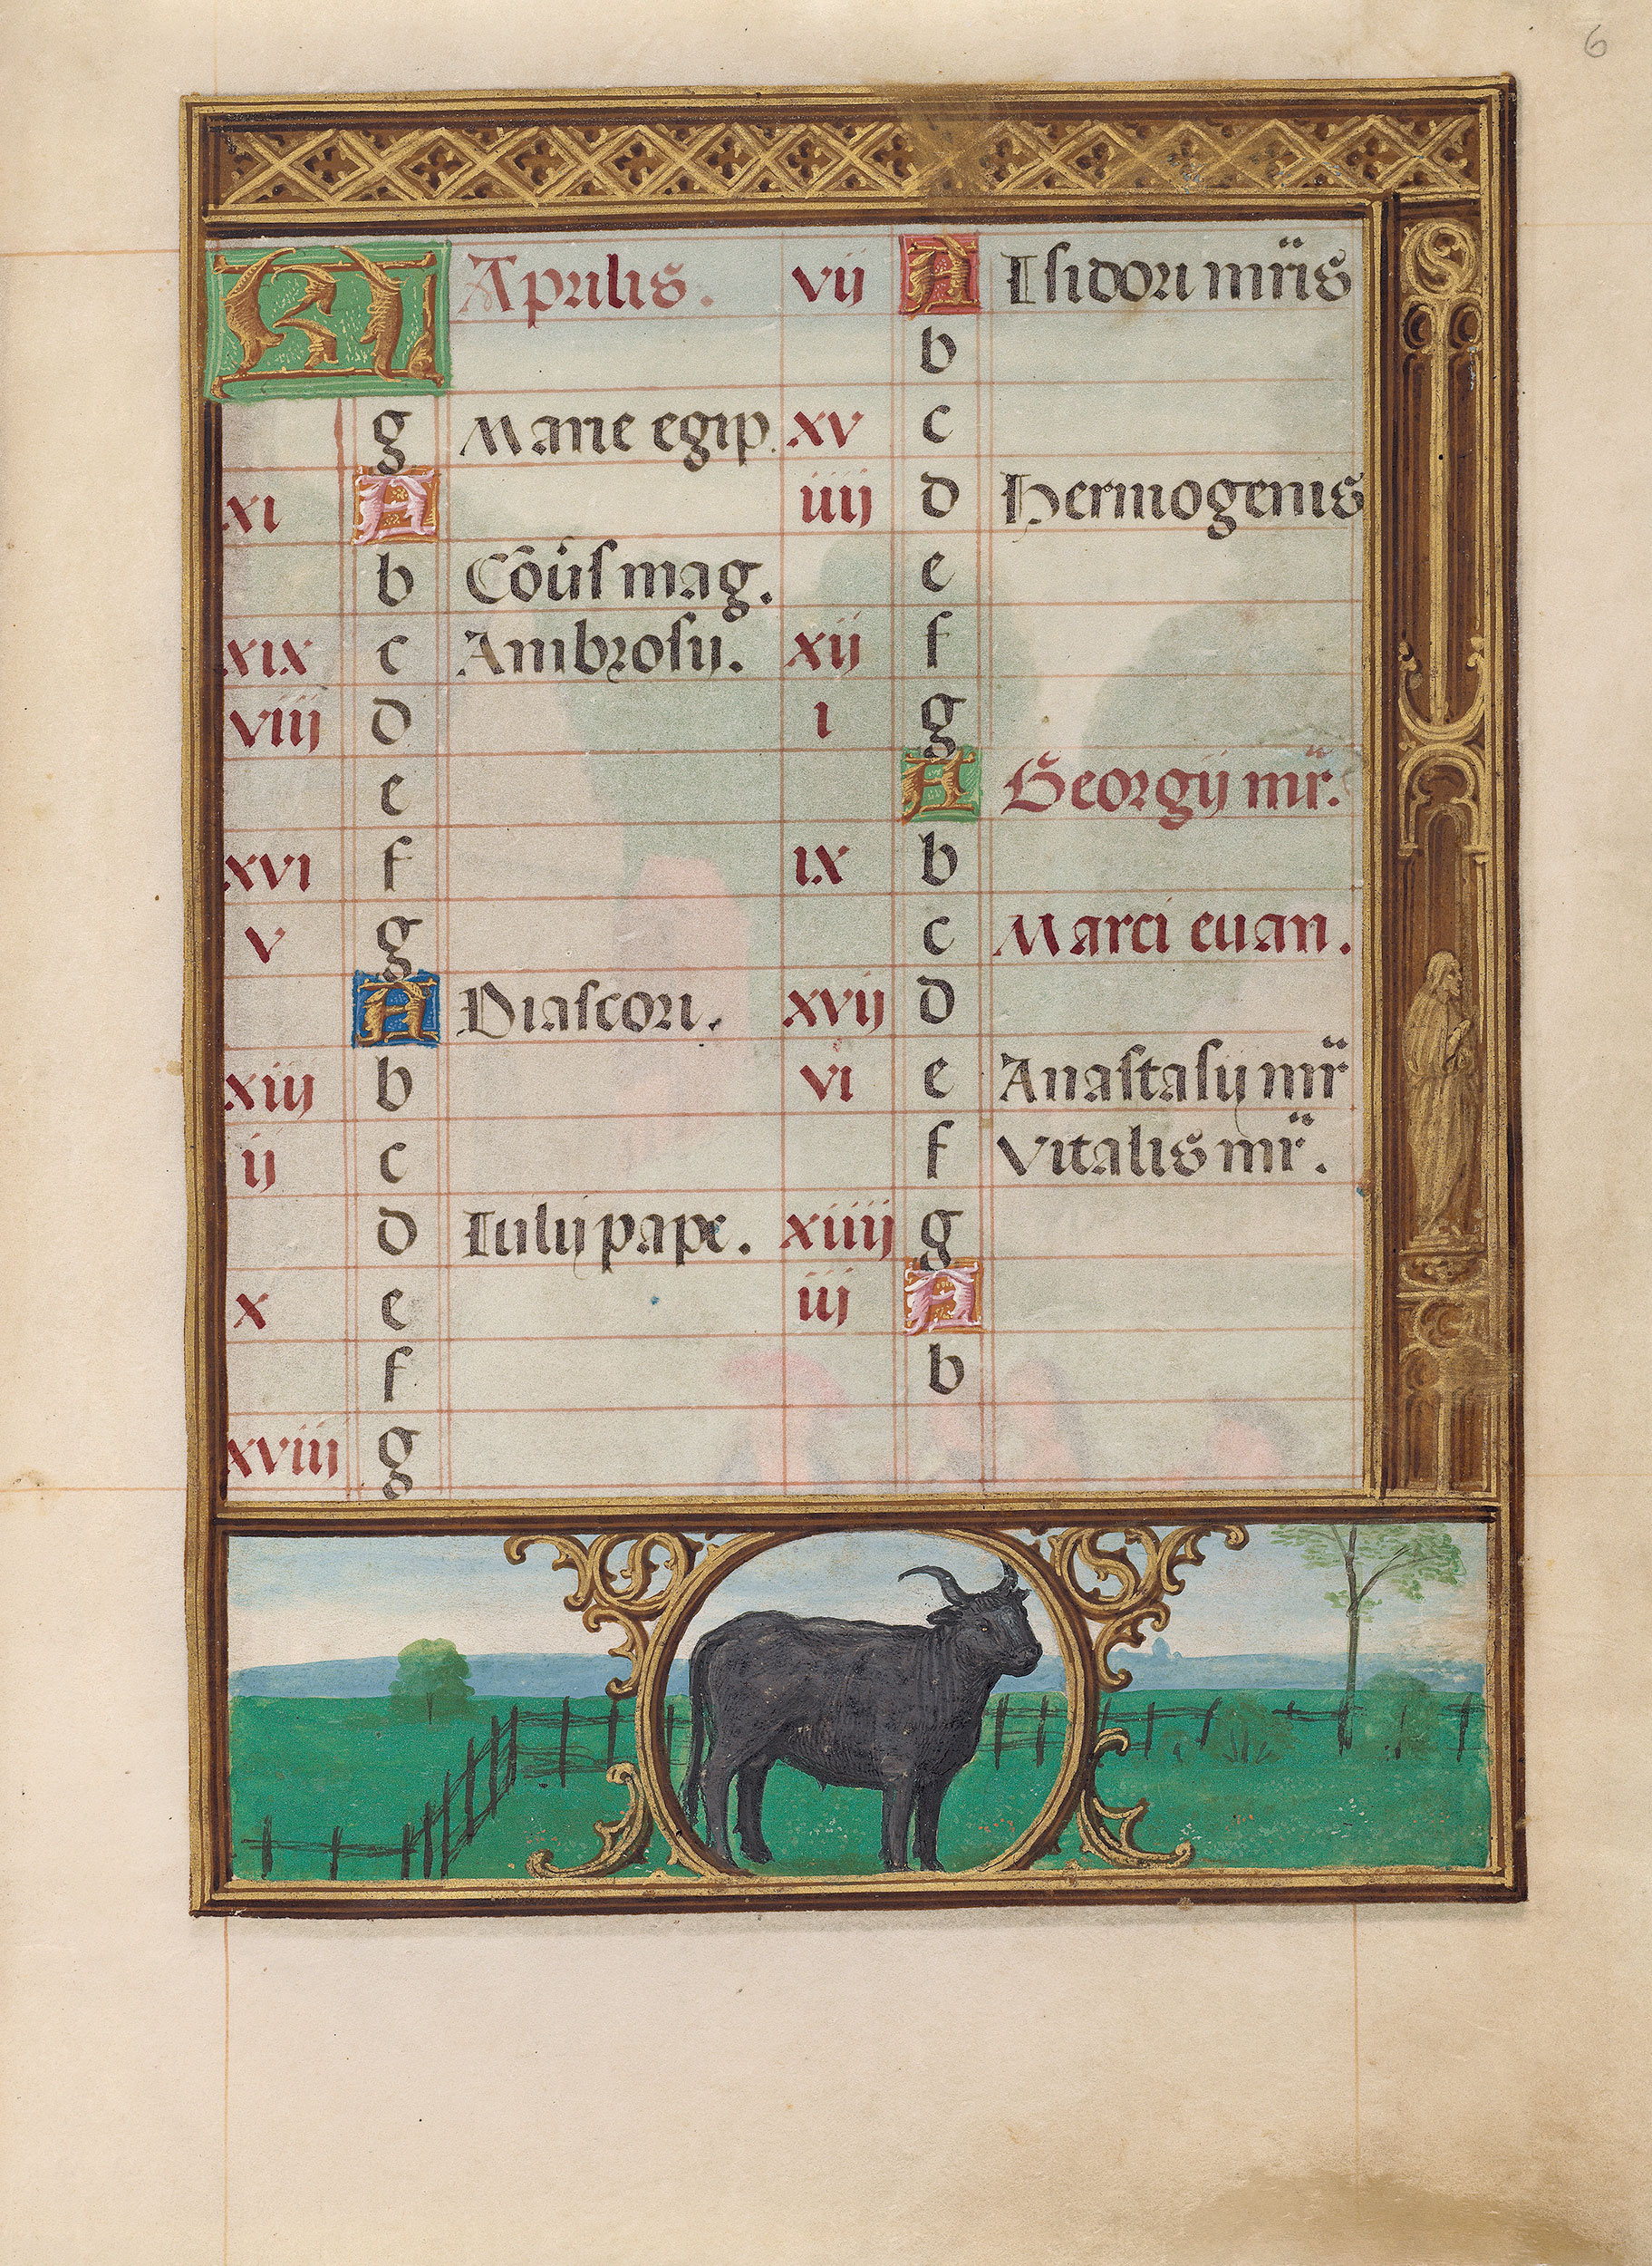 6
KL Aprilis.
g Marie egip.
xi A
b Cōūs mag.
xix c Ambrosij.
viij d
e
xvi f
v g
A Diascori.
xiij b
ij c
d Iulij pape.
x e
f
xviij g
vij A Isidori mr̄is
b
xv c
iiij d Hermogenis
e
xij f
i g
A Georgij mr̄.
ix b
c Marci euan.
xvij d
vi e Anastasij mr̄
f Vitalis mr̄.
xiiij g
iij A
b